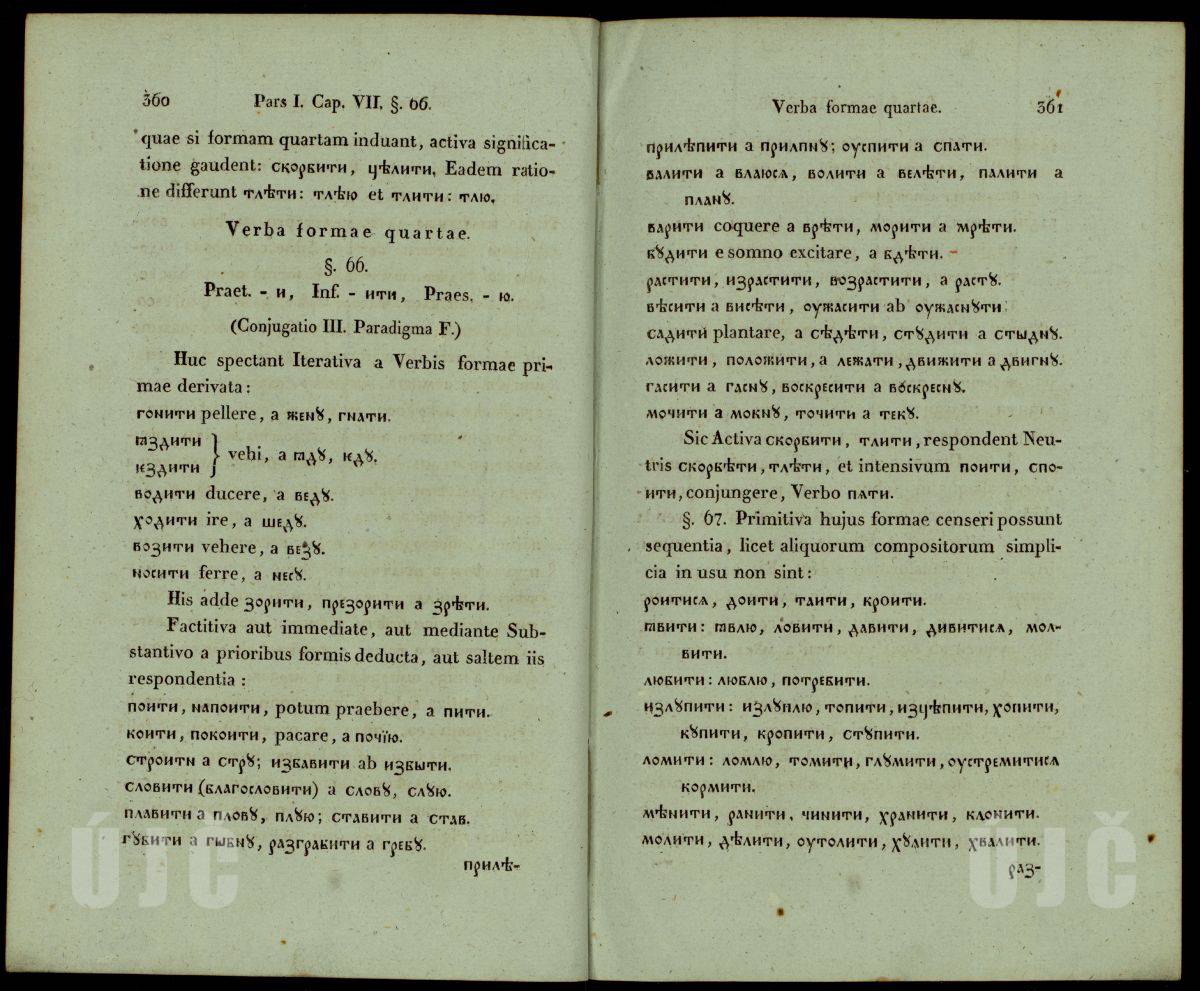 360 Pars I. Cap. VII. §. 66.
quae si formam quartam induant, activa significa-
tione gaudent: скорбити, цѣлити. Eadem ratio-
ne differunt тлѣти: тлѣю et тлити: тлю.
Verba formae quartae.
§. 66.
Praet. - и, Inf. - ити, Praes. - ю.
(Conjugatio III. Paradigma F.)
Huc spectant Iterativa a Verbis formae pri-
mae derivata:
гонити pellere, a женꙋ, гнати.
ꙗздити
ѥздити } vehi, a ꙗдꙋ, ѥдꙋ.
водити ducere, a ведꙋ.
ходити ire, a шедꙋ.
возити vehere, a везꙋ.
носити ferre, a несꙋ.
His adde зорити, презорити a зрѣти.
Factitiva aut immediate, aut mediante Sub-
stantivo a prioribus formis deducta, aut saltem iis
respondentia:
поити, напоити, potum praebere, a пити.
коити, покоити, pacare, a почїю.
строити a стрꙋ; избавити ab избыти.
словити (благословити) a словꙋ, слꙋю.
плавити a пловꙋ, плꙋю; ставити a став.
гꙋбити a гыбнꙋ, разграбити a гребꙋ.
прилѣ-
Verba formae quartae. 361
прилѣпити a прилпнꙋ; оуспити a спати.
валити a влаюсѧ, волити a велѣти, палити a
планꙋ.
варити coquere a врѣти, морити a мрѣти.
бꙋдити e somno excitare, a бдѣти.
растити, израстити, возрастити, a растꙋ.
вѣсити a висѣти, оужасити ab оужаснꙋти.
садити plantare, a сѣдѣти, стꙋдити a стыднꙋ.
ложити, положити, a лежати, движити a двигнꙋ.
гасити a гаснꙋ, воскресити a воскреснꙋ.
мочити a мокнꙋ, точити a текꙋ.
Sic Activa скорбити, тлити, respondent Neu-
tris скорбѣти, тлѣти, et intensivum поити, спо-
ити, conjungere, Verbo пѧти.
§. 67. Primitiva hujus formae censeri possunt
sequentia, licet aliquorum compositorum simpli-
cia in usu non sint:
роитисѧ, доити, таити, кроити.
ꙗвити: ꙗвлю, ловити, давити, дивитисѧ, мол-
вити.
любити: люблю, потребити.
излꙋпити: излꙋплю, топити, изцѣпити, хопити,
кꙋпити, кропити, стꙋпити.
ломити: ломлю, томити, глꙋмити, оустремитисѧ
кормити.
мѣнити, ранити, чинити, хранити, клонити.
молити, дѣлити, оутолити, хꙋлити, хвалити.
раз-
ÚJČ ÚJČ